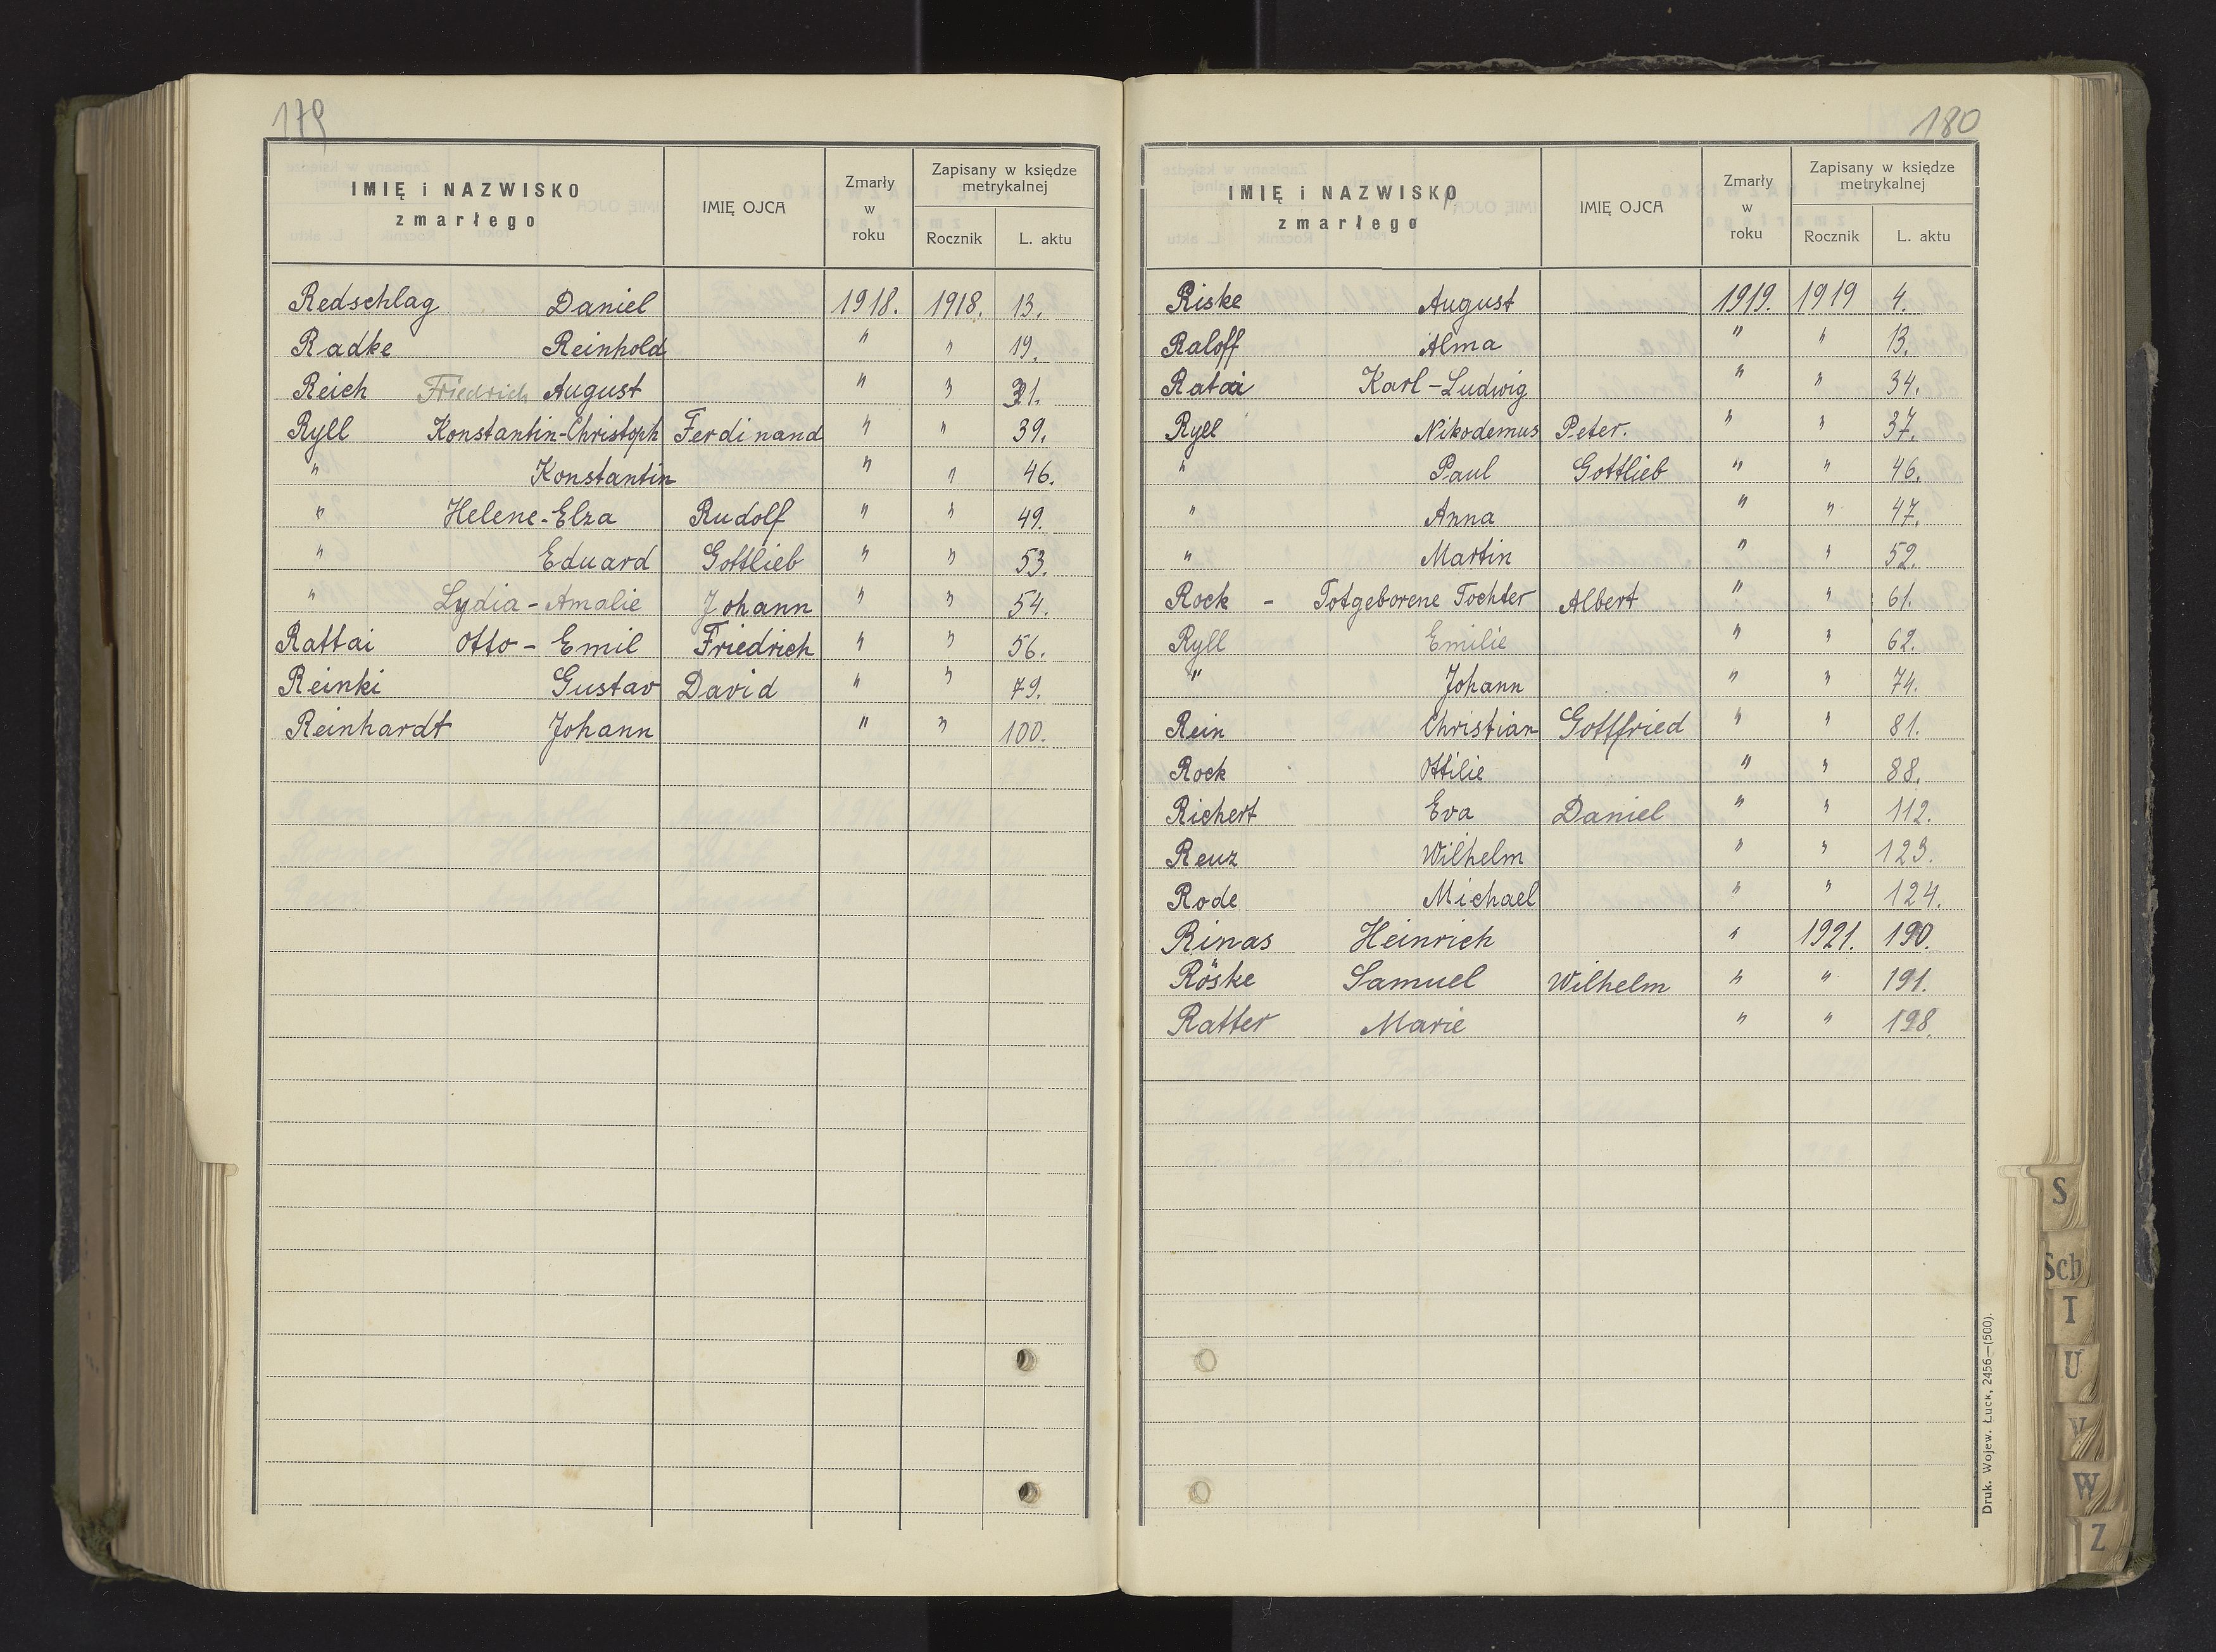 179
IMIĘ i NAZWISKO zmarłego | IMIĘ OJCA | Zmarły w roku | Zapisany w księdze metrykalnej
Rocznik | L. aktu
Redschlag Daniel 1918. 1918. 13.
Radke Reinhold " " 19.
Reich Friedrich August " " 31.
Ryll Konstantin-Christoph Ferdinand " " 39.
" Konstantin " " 46.
" Helene-Elza Rudolf " " 49.
" Eduard Gottlieb " " 53.
" Lydia-Amalie Johann " " 54.
Rattai Otto-Emil Friedrich " " 56.
Reinki Gustav David " " 79.
Reinhardt Johann " " 100.
180
IMIĘ i NAZWISKO zmarłego | IMIĘ OJCA | Zmarły w roku | Zapisany w księdze metrykalnej
Rocznik | L. aktu
Riske August 1919. 1919 4.
Raloff Alma " " 13.
Ratai Karl-Ludwig " " 34.
Ryll Nikodemus Peter. " " 37.
" Paul Gottlieb " " 46.
" Anna " " 47.
" Martin " " 52.
Rock - Totgeborene Tochter Albert " " 61.
Ryll Emilie " " 62.
" Johann " " 74.
Rein Christian Gottfried " " 81.
Rock Ottilie " " 88.
Richert Eva Daniel " " 112.
Reuz Wilhelm " " 123.
Rode Michael " " 124.
Rinas Heinrich " 1921. 190.
Röske Samuel Wilhelm " " 191.
Ratter Marie " " 198.
S
Sch
T
U
V
W
Z
Druk. Wojew. Łuck, 2456—(500).